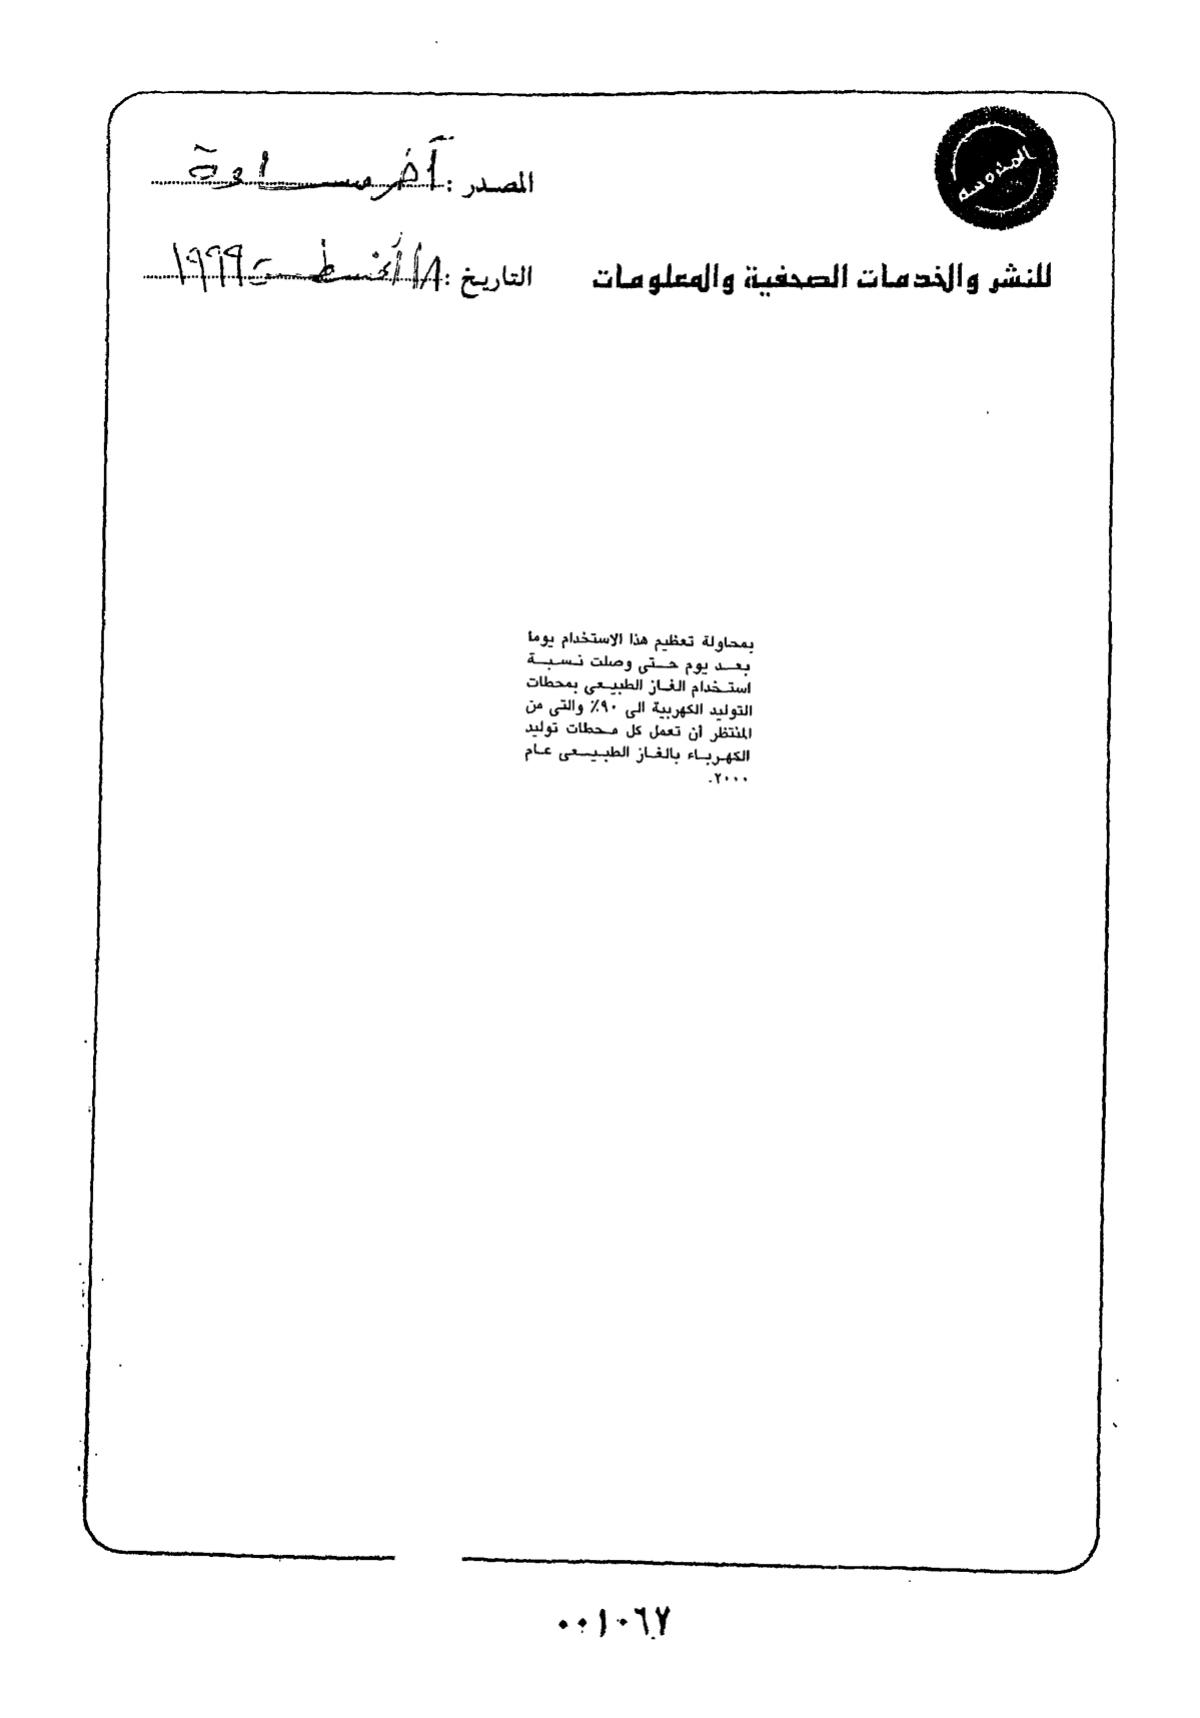 المحروسة
المصدر : آخر ساعة
للنشر والخدمات الصحفية والمعلومات
التاريخ : ١٨ أغسطس ١٩٩٩
بمحاولة تعظيم هذا الاستخدام يوما
بعد يوم حتى وصلت نسبة
استخدام الغاز الطبيعى بمحطات
التوليد الكهربية الى ٩٠٪ والتى من
المنتظر أن تعمل كل محطات توليد
الكهرباء بالغاز الطبيعى عام
٢٠٠٠.
٠٠١٠٦٧